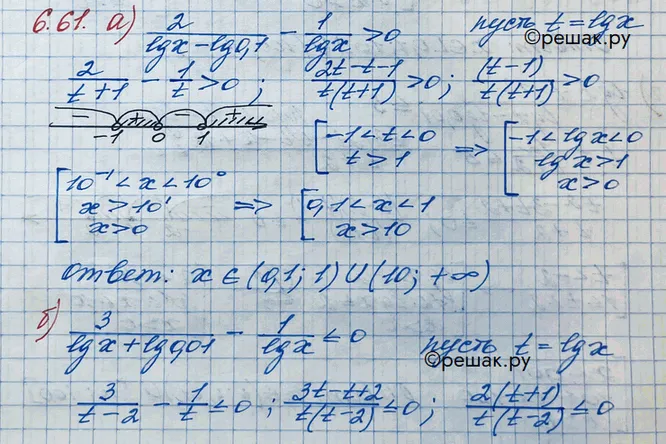 6.61. а) 2/(lgx-lg0,1) - 1/lgx >0 пусть t=lgx
©решак.ру
2/(t+1) - 1/t >0; (2t-t-1)/(t(t+1)) >0; (t-1)/(t(t+1)) >0
- + - +
-1 0 1
[-1<t<0 => [-1<lgx<0
t>1 lgx>1
x>0
[10⁻¹<x<10⁰ => [0,1<x<1
x>10¹ x>10
x>0
ответ: x∈(0,1;1)∪(10;+∞)
б) 3/(lgx+lg0,01) - 1/lgx ≤0 пусть t=lgx
©решак.ру
3/(t-2) - 1/t ≤0; (3t-t+2)/(t(t-2)) ≤0; 2(t+1)/(t(t-2)) ≤0